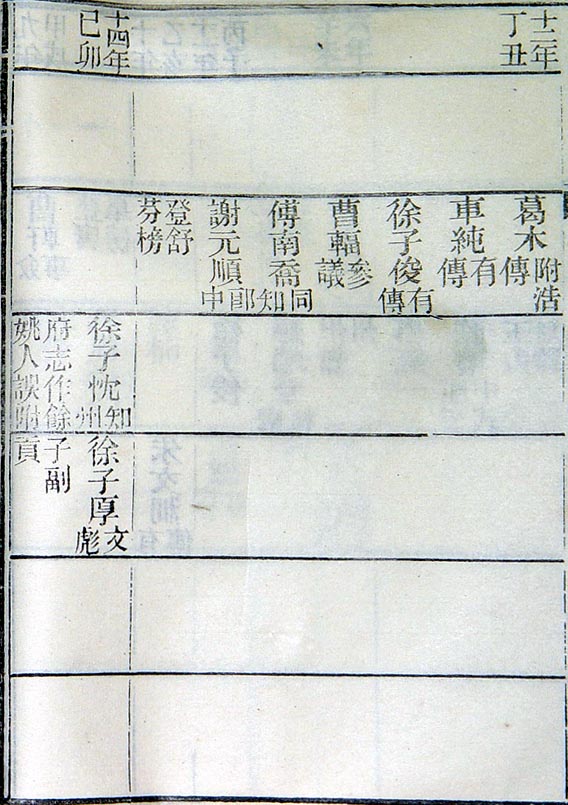 十二年
丁丑
葛木附浩傳
車純有傳
徐子俊有傳
曹輻參議
傅南喬同知
謝元順郎中
登舒
芬榜
十四年
己卯
徐子忱知州
府志作餘
姚人誤附
徐子厚文彪
子副
貢